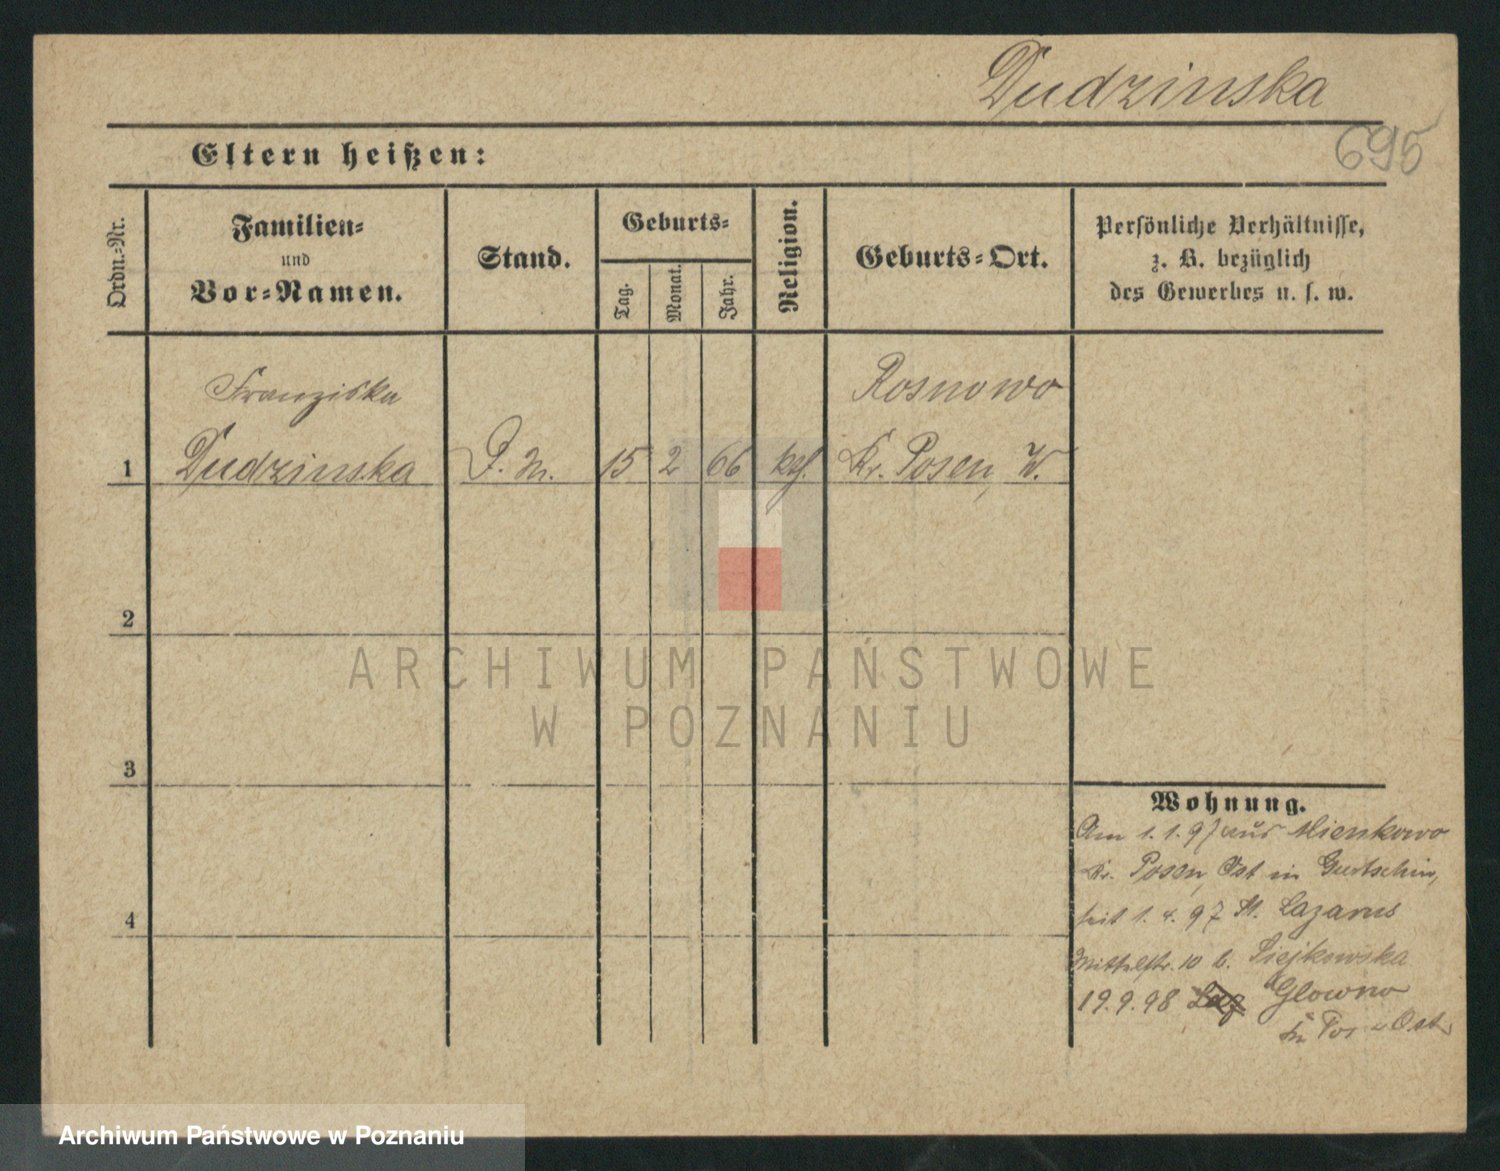 Dudzinska
695
Eltern heißen:
Ordn.-Nr.
Familien-
und
Vor-Namen.
Stand.
Geburts-
Tag.
Monat.
Jahr.
Religion.
Geburts-Ort.
Persönliche Verhältnisse,
z. B. bezüglich
des Gewerbes u. s. w.
Franziska
Rosnowo
1 Dudzinska D. M. 15 2 66 kth. Kr. Posen, W.
2
3
4
Wohnung.
Am 1.1.97 aus Mienkowo
Kr. Posen, Ost in Gurtschin,
seit 1.4.97 St. Lazarus
Mittelstr. 10 b. Piejkowska
19.9.98 Glowno
Kr Pos - Ost
ARCHIWUM PAŃSTWOWE
W POZNANIU
Archiwum Państwowe w Poznaniu